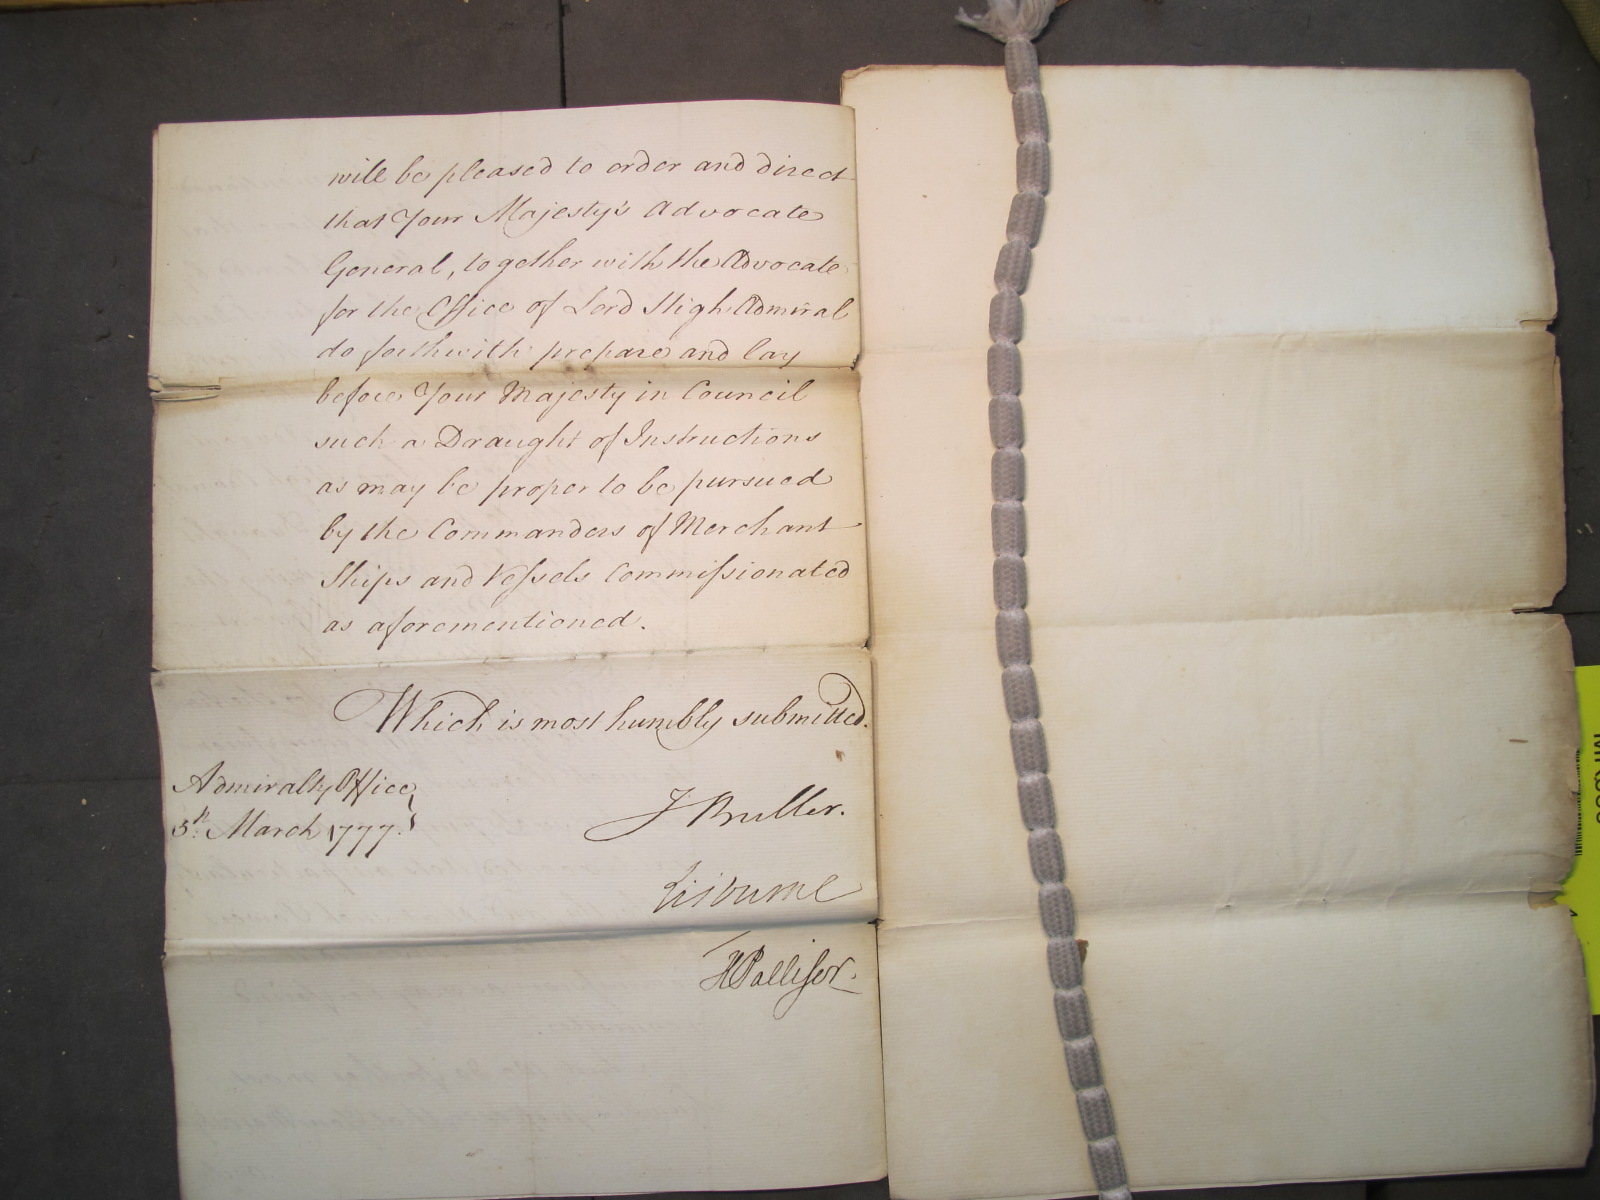 will be pleased to order and direct
that Your Majesty's Advocate
General, together with the Advocate
for the Office of Lord High Admiral
do forthwith prepare and lay
before Your Majesty in Council
such a Draught of Instructions
as may be proper to be pursued
by the Commanders of Merchant
Ships and Vessels Commissionated
as aforementioned.
Which is most humbly submitted.
Admiralty Office
5th March 1777.
J Buller.
Lisburne
H Palliser.